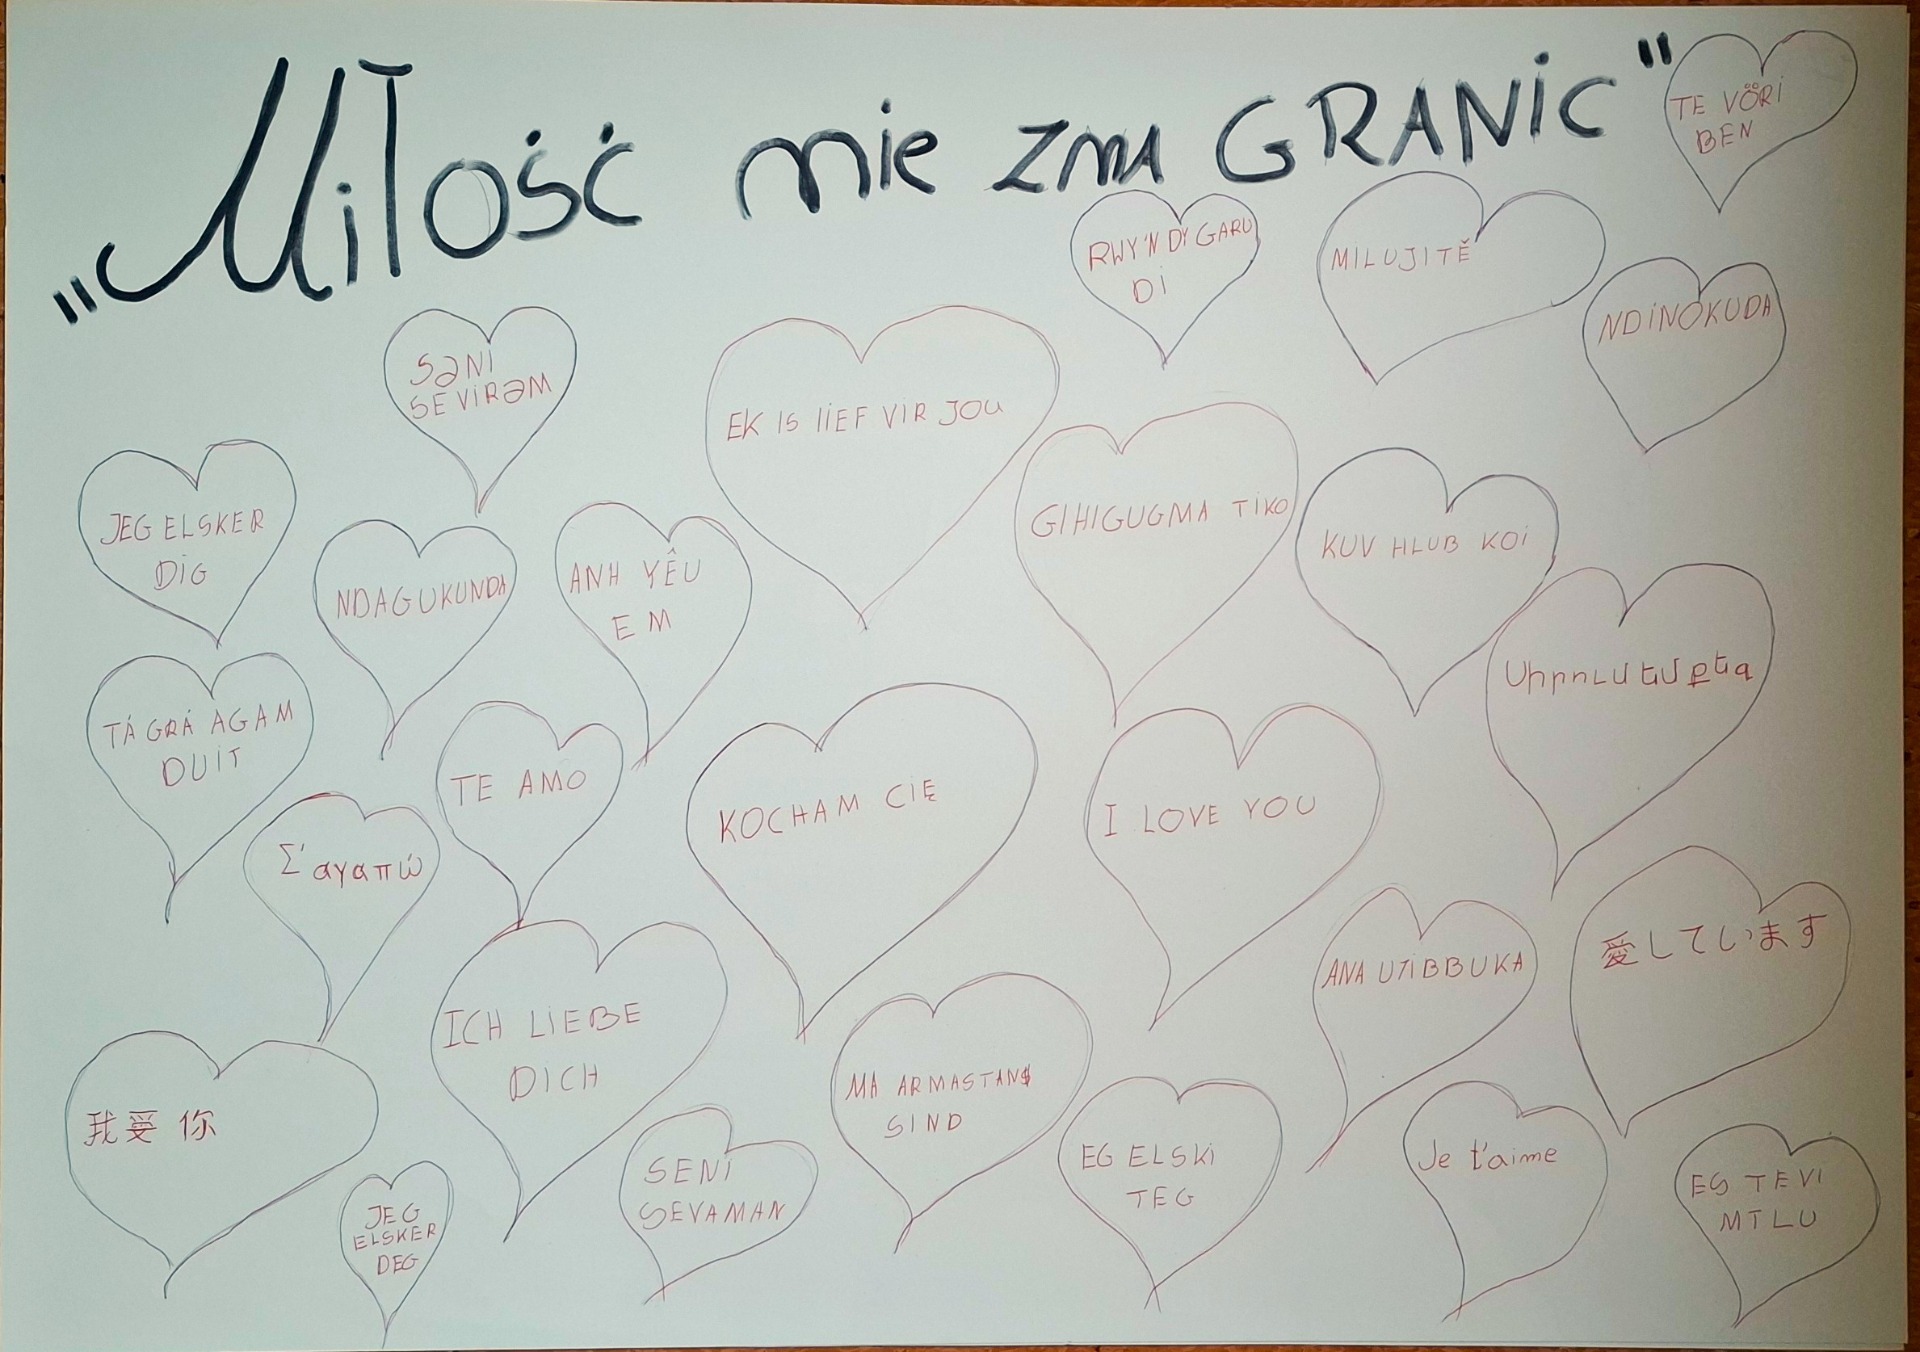 „Miłość nie zna GRANIC"
TE VÖRI
BEN
RWY'N DY GARU
DI
MILUJI TĚ
NDINOKUDA
SƏNI
SEVIRƏM
EK IS lIEF VIR JOU
GIHIGUGMA TIKO
KUV HLUB KOI
JEG ELSKER
DIG
NDAGUKUNDA
ANH YÊU
EM
Սիրում եմ քեզ
TÁ GRÁ AGAM
DUIT
TE AMO
KOCHAM CIĘ
I LOVE YOU
Σ'αγαπώ
愛しています
ANA UTIBBUKA
ICH LIEBE
DICH
MA ARMASTAN
SIND
我爱你
EG ELSKI
TEG
Je t'aime
SENI
SEVAMAN
ES TEVI
MTLU
JEG
ELSKER
DEG